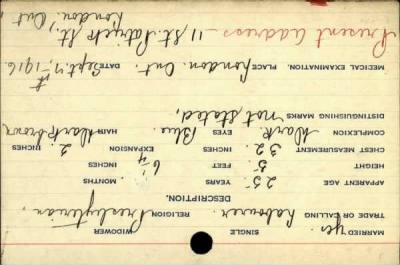 MARRIED yes. SINGLE WIDOWER
TRADE OR CALLING Labourer. RELIGION Presbyterian,
DESCRIPTION.
APPARENT AGE 25 YEARS MONTHS.
HEIGHT 5 FEET 6 1/4 INCHES
CHEST MEASUREMENT 32 INCHES EXPANSION 2 INCHES
COMPLEXION Dark EYES Blue. HAIR Dark brown
DISTINGUISHING MARKS not stated,
MEDICAL EXAMINATION. PLACE London. Ont. DATE Sept. 7th, 1916
Present address - 11 St. Patrick St.,
London. Ont